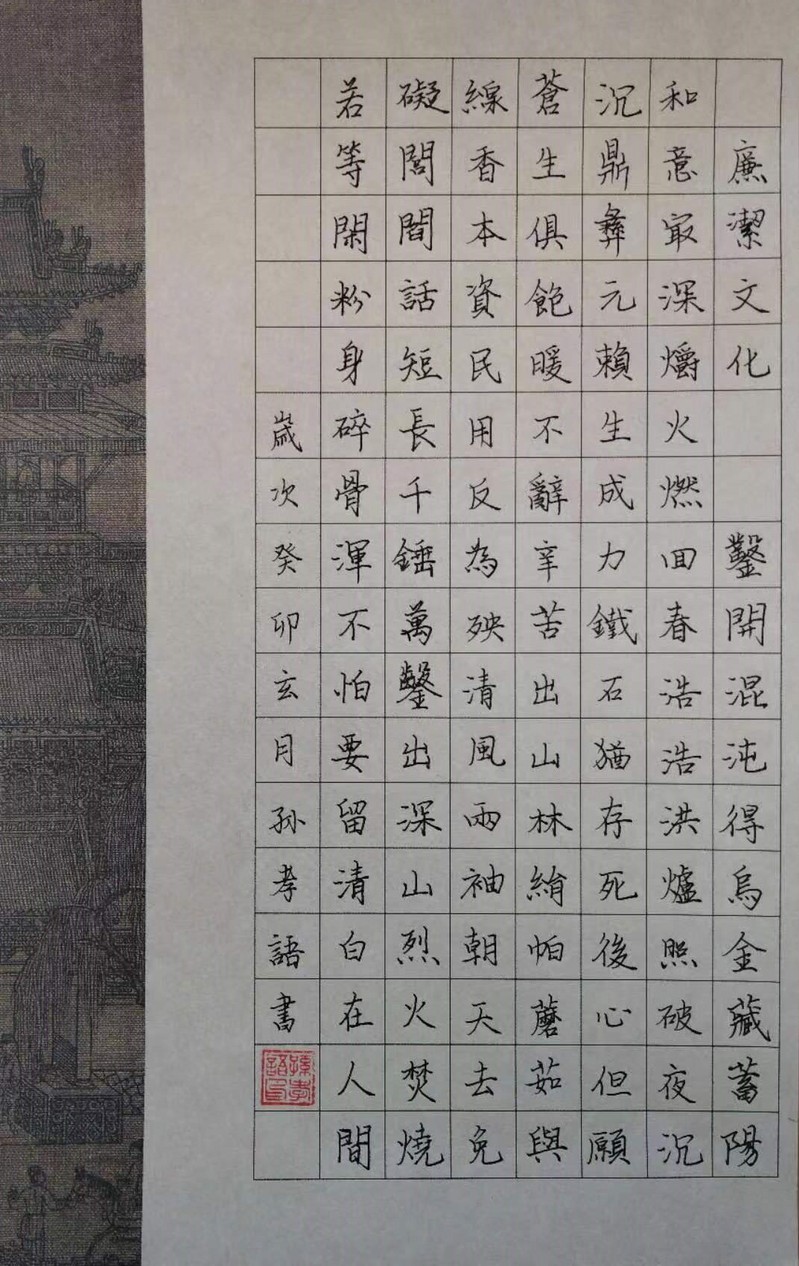 廉潔文化 鑿開混沌得烏金藏蓄陽
和意最深爝火燃回春浩浩洪爐照破夜沉
沉鼎彝元賴生成力鐵石猶存死後心但願
蒼生俱飽暖不辭辛苦出山林絹帕蘑茹與
線香本資民用反為殃清風兩袖朝天去免
礙閭閻話短長千錘萬鑿出深山烈火焚燒
若等閑粉身碎骨渾不怕要留清白在人間
歲次癸卯玄月孫孝語書
孫孝語印